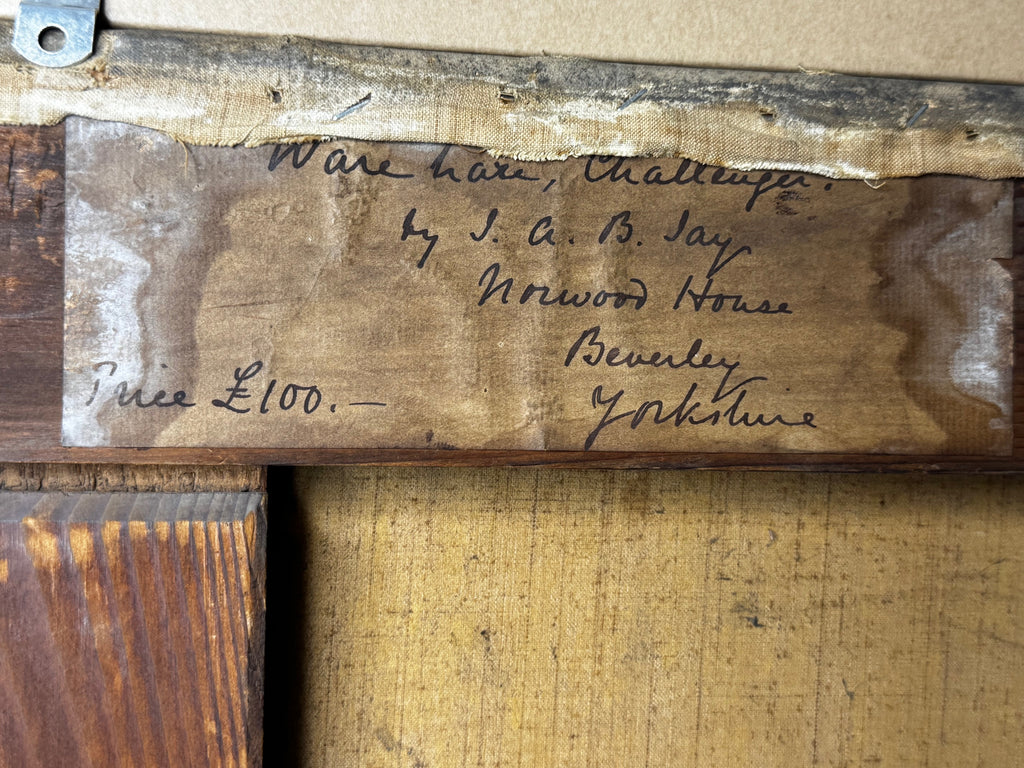 Ware hare, Challenger.
by J. A. B. Jay
Norwood House
Beverley
Price £100.—
Yorkshire